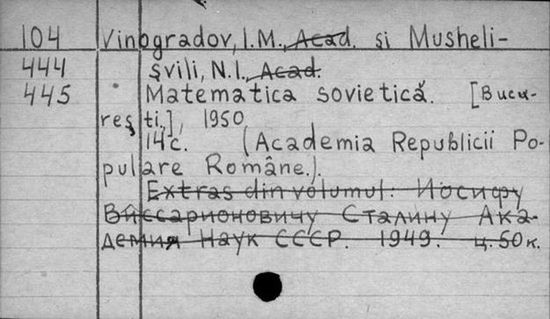 104 Vinogradov, I.M., Acad. şi Musheli-
444 şvili, N.I., Acad.
445 Matematica sovietică. [Bucu-
reşti,], 1950
14 c. (Academia Republicii Po-
pulare Române.).
Extras din volumul: Иосифу
Виссарионовичу Сталину Ака-
демия Наук СССР. 1949. ц. 50 к.